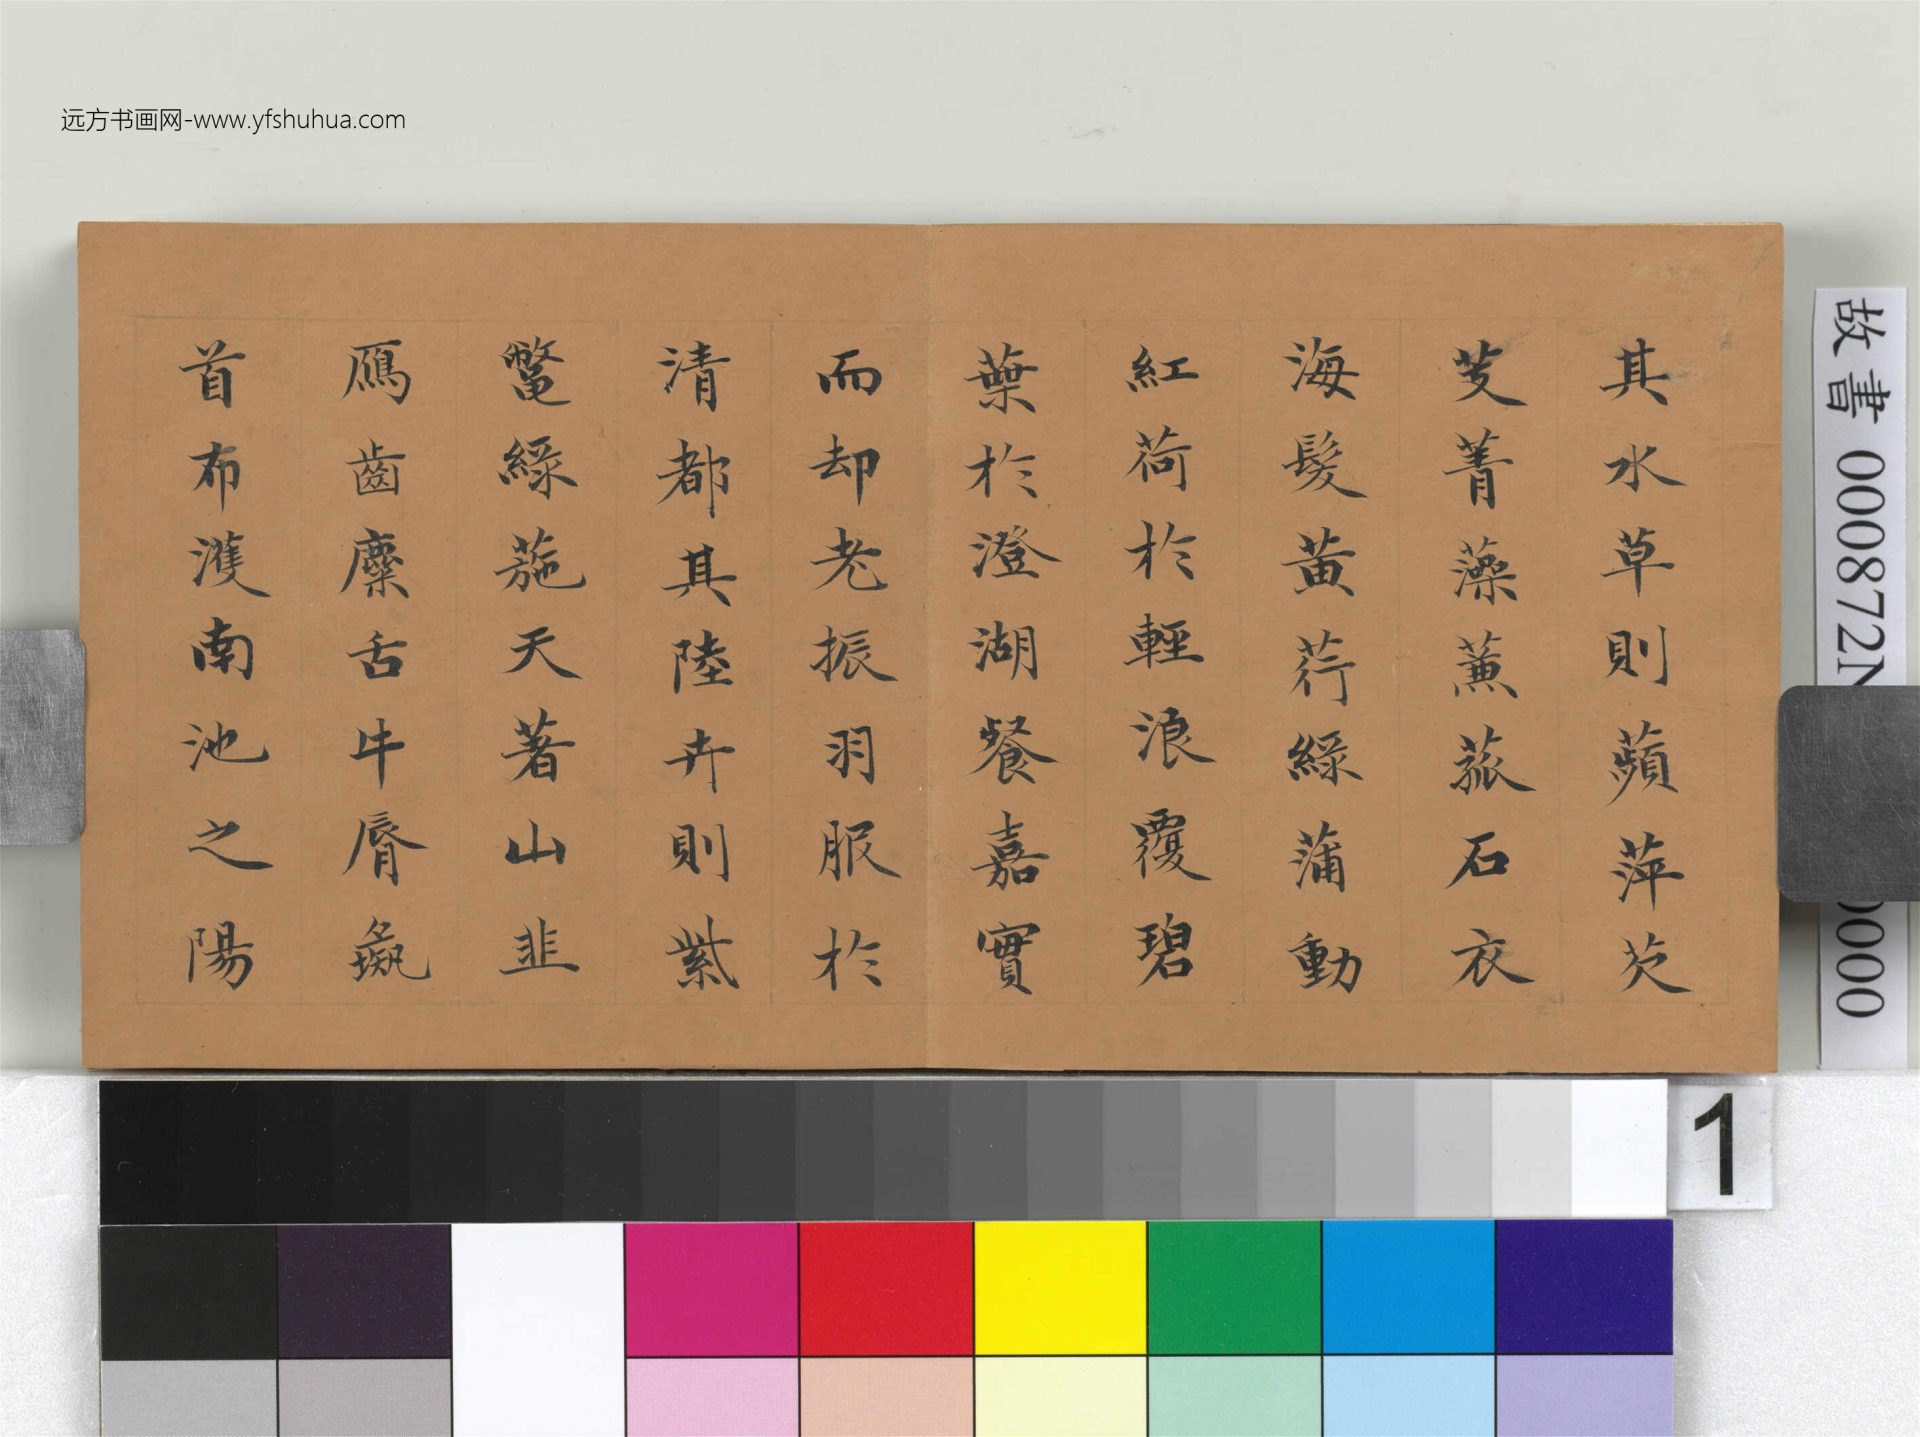 远方书画网-www.yfshuhua.com
其水草則蘋萍芡
芰菁藻蒹菰石衣
海髮黃荇綠蒲動
紅荷於輕浪覆碧
葉於澄湖餐嘉實
而却老振羽服於
清都其陸卉則紫
鼈綠葹天著山韭
鴈齒麋舌牛脣彘
首布濩南池之陽
故書 000872N
0000
1